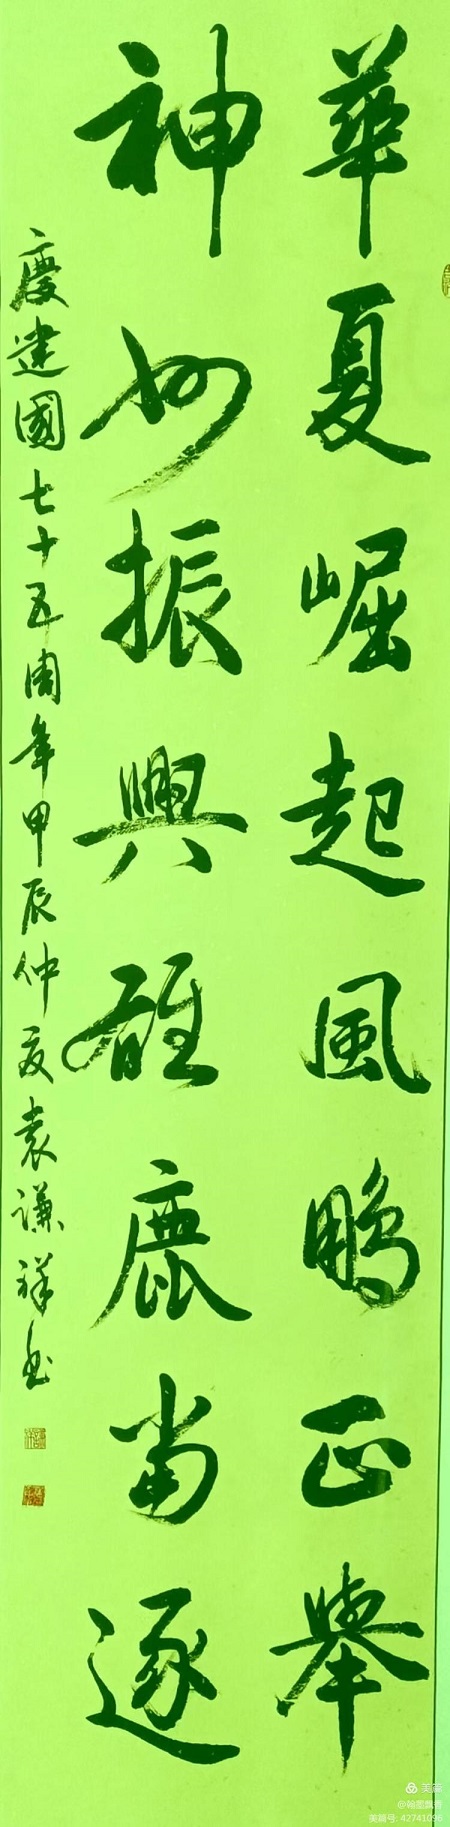 華夏崛起風鵬正舉
神州振興雄鹿當逐
慶建國七十五周年甲辰仲夏袁謙祥書
美篇
@翰墨飘香
美篇号: 42741098